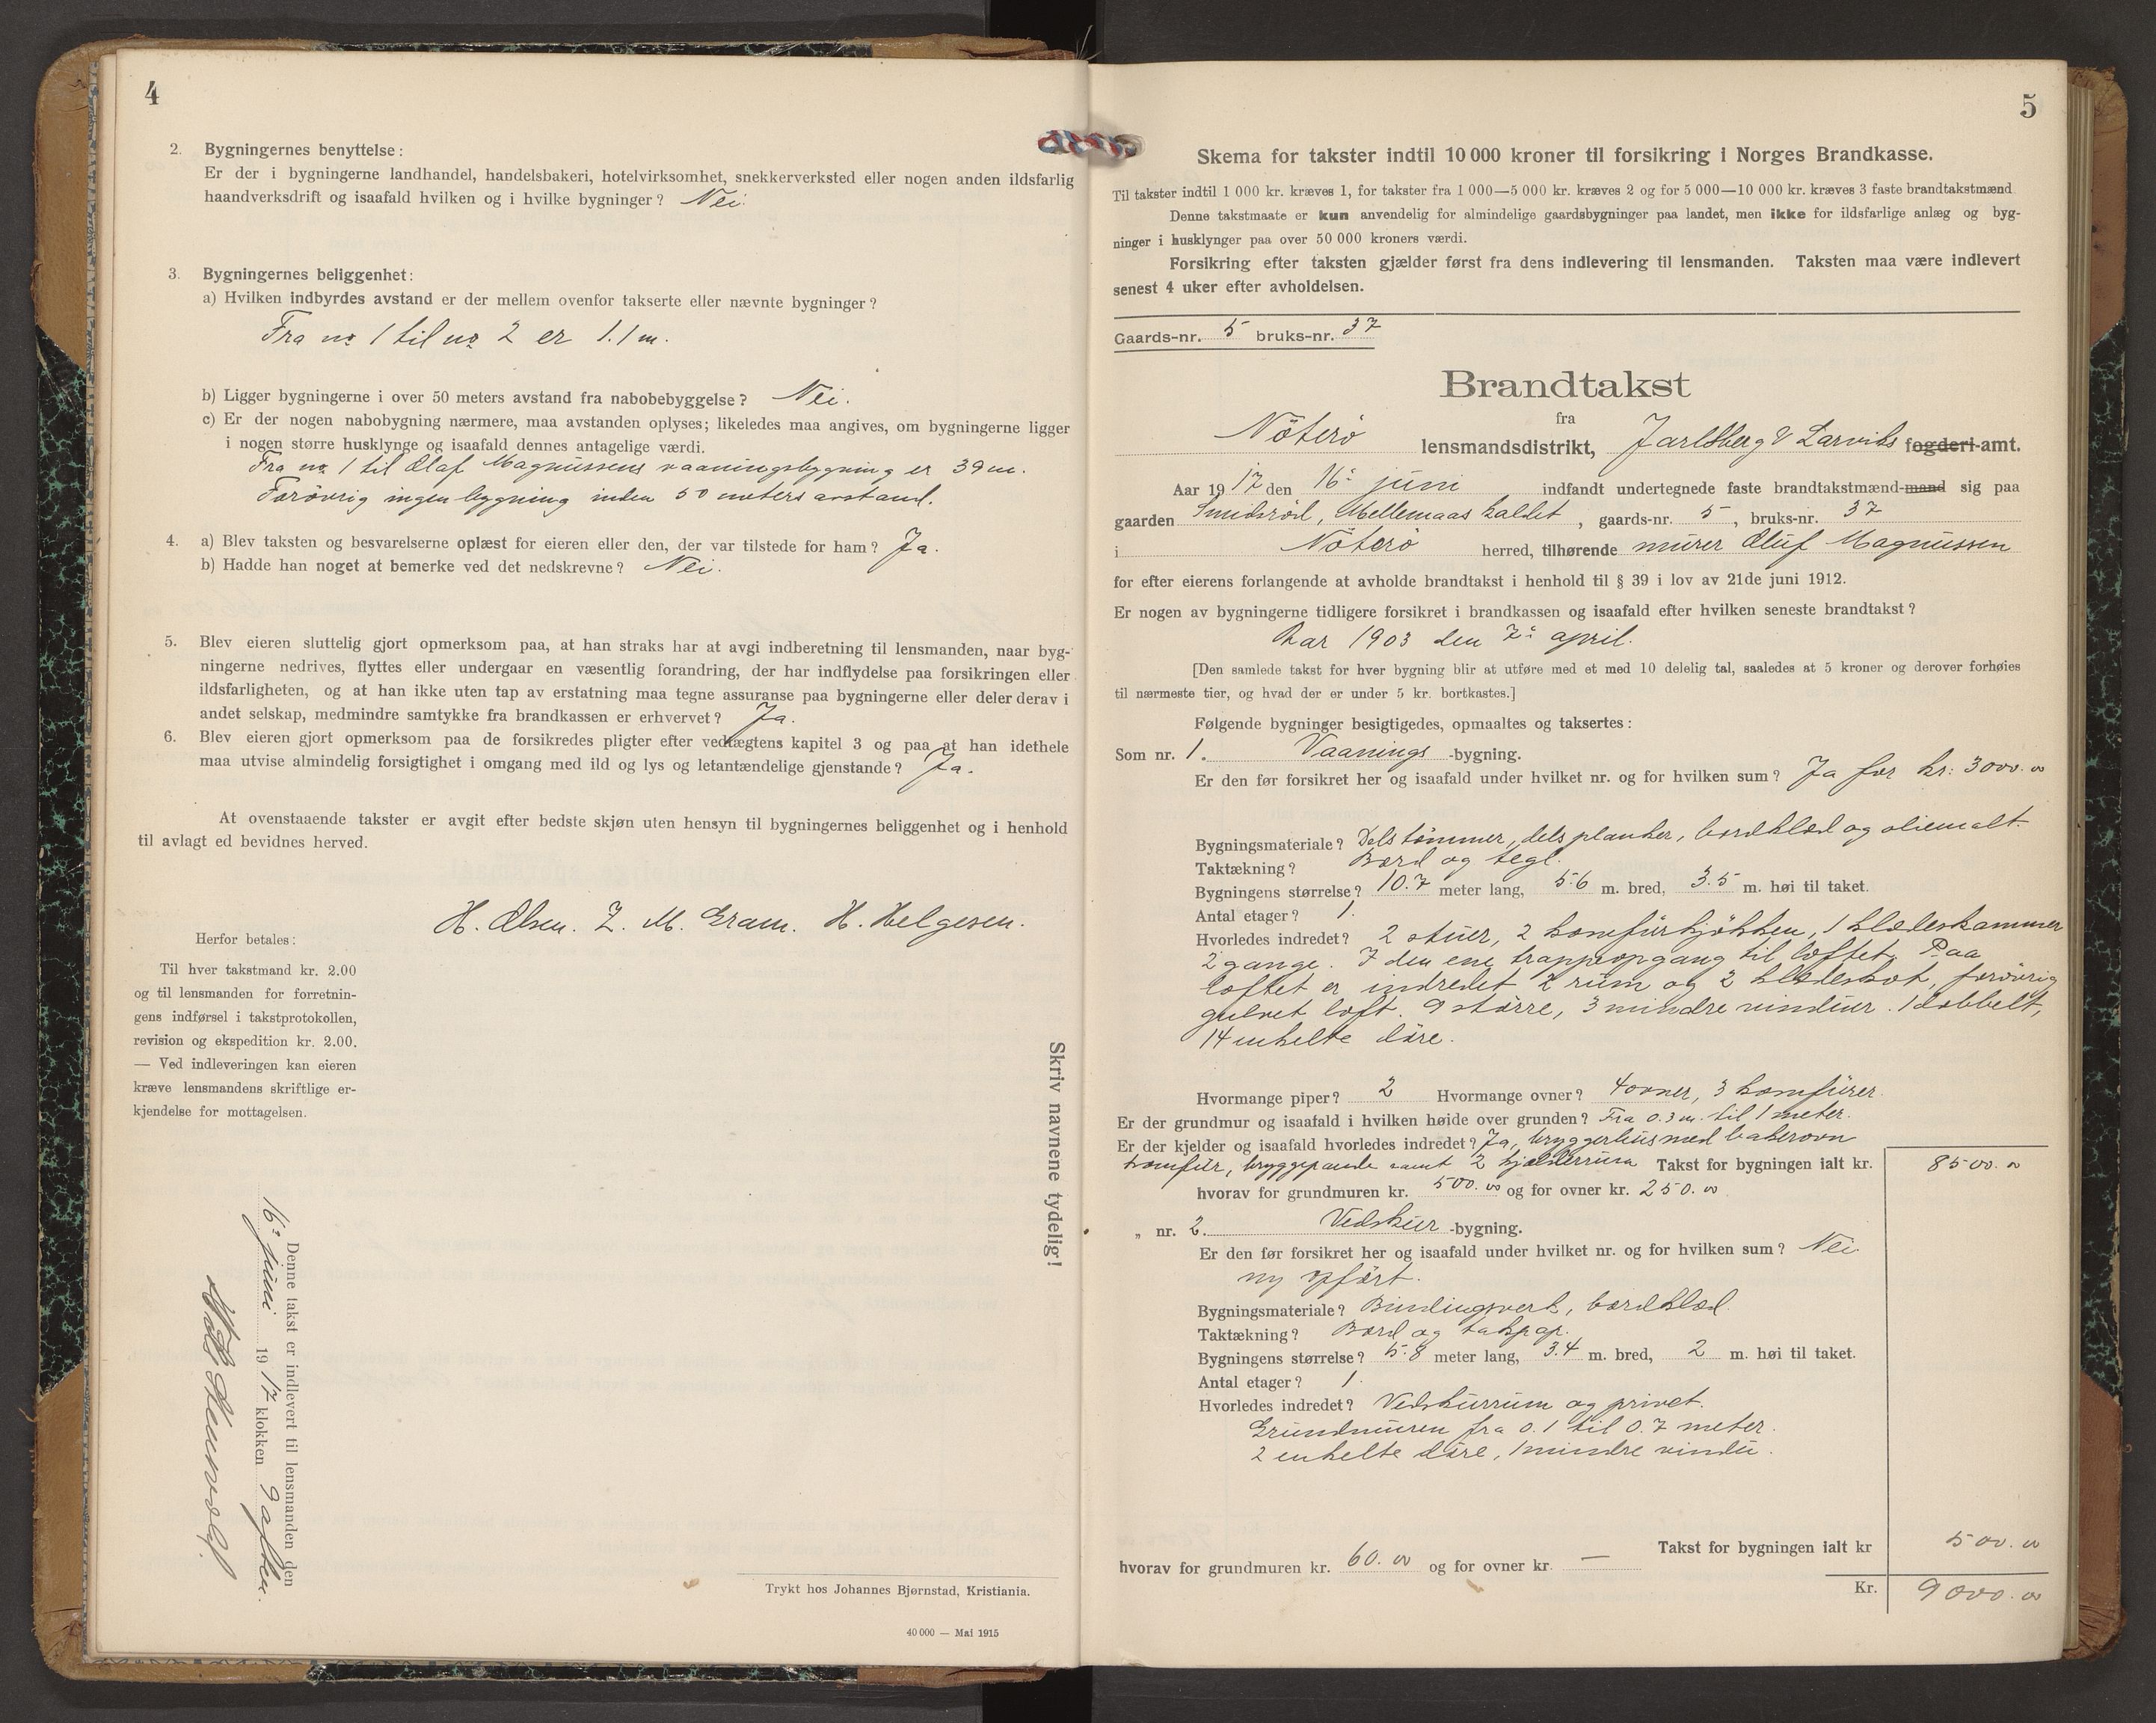 4
2. Bygningernes benyttelse:
Er der i bygningerne landhandel, handelsbakeri, hotelvirksomhet, snekkerverksted eller nogen anden ildsfarlig
haandverksdrift og isaafald hvilken og i hvilke bygninger? Nei.
3. Bygningernes beliggenhet:
a) Hvilken indbyrdes avstand er der mellem ovenfor takserte eller nævnte bygninger?
Fra no 1 til no 2 er 1.1 m.
b) Ligger bygningerne i over 50 meters avstand fra nabobebyggelse? Nei.
c) Er der nogen nabobygning nærmere, maa avstanden oplyses; likeledes maa angives, om bygningerne ligger
i nogen større husklynge og isaafald dennes antagelige værdi.
Fra no. 1 til Olaf Magnussens vaaningsbygning er 39 m.
Forövrig ingen bygning inden 50 meters avstand.
4. a) Blev taksten og besvarelserne oplæst for eieren eller den, der var tilstede for ham? Ja.
b) Hadde han noget at bemerke ved det nedskrevne? Nei.
5. Blev eieren sluttelig gjort opmerksom paa, at han straks har at avgi indberetning til lensmanden, naar byg-
ningerne nedrives, flyttes eller undergaar en væsentlig forandring, der har indflydelse paa forsikringen eller
ildsfarligheten, og at han ikke uten tap av erstatning maa tegne assuranse paa bygningerne eller deler derav i
andet selskap, medmindre samtykke fra brandkassen er erhvervet? Ja.
6. Blev eieren gjort opmerksom paa de forsikredes pligter efter vedtægtens kapitel 3 og paa at han idethele
maa utvise almindelig forsigtighet i omgang med ild og lys og letantændelige gjenstande? Ja.
At ovenstaaende takster er avgit efter bedste skjøn uten hensyn til bygningernes beliggenhet og i henhold
til avlagt ed bevidnes herved.
H. Olsen. Z. M. Gram. H. Helgesen.
Herfor betales:
Til hver takstmand kr. 2.00
og til lensmanden for forretnin-
gens indførsel i takstprotokollen,
revision og ekspedition kr. 2.00.
— Ved indleveringen kan eieren
kræve lensmandens skriftlige er-
kjendelse for mottagelsen.
Skriv navnene tydelig!
Denne takst er indlevert til lensmanden den
16: juni 1917 klokken 9 aften.
Trykt hos Johannes Bjørnstad, Kristiania.
40 000 — Mai 1915
5
Skema for takster indtil 10 000 kroner til forsikring i Norges Brandkasse.
Til takster indtil 1 000 kr. kræves 1, for takster fra 1 000—5 000 kr. kræves 2 og for 5 000—10 000 kr. kræves 3 faste brandtakstmænd
Denne takstmaate er kun anvendelig for almindelige gaardsbygninger paa landet, men ikke for ildsfarlige anlæg og byg-
ninger i husklynger paa over 50 000 kroners værdi.
Forsikring efter taksten gjælder først fra dens indlevering til lensmanden. Taksten maa være indlevert
senest 4 uker efter avholdelsen.
Gaards-nr. 5 bruks-nr. 37
Brandtakst
fra
Nöterö lensmandsdistrikt, Jarlsberg & Larviks fogderi-amt.
Aar 1917 den 16: juni indfandt undertegnede faste brandtakstmænd-mand sig paa
gaarden Smidsröd, Mellemaas kaldet, gaards-nr. 5, bruks-nr. 37
i Nöterö herred, tilhørende murer Oluf Magnussen
for efter eierens forlangende at avholde brandtakst i henhold til § 39 i lov av 21de juni 1912.
Er nogen av bygningerne tidligere forsikret i brandkassen og isaafald efter hvilken seneste brandtakst?
Aar 1903 den 7: april.
[Den samlede takst for hver bygning blir at utføre med et med 10 delelig tal, saaledes at 5 kroner og derover forhøies
til nærmeste tier, og hvad der er under 5 kr. bortkastes.]
Følgende bygninger besigtigedes, opmaaltes og taksertes:
Som nr. 1. Vaanings-bygning.
Er den før forsikret her og isaafald under hvilket nr. og for hvilken sum? Ja for kr: 3000.00
Bygningsmateriale? Dels tömmer, dels planker, bordklæd og oliemalt.
Taktækning? Bord og tegl.
Bygningens størrelse? 10.7 meter lang, 5.6 m. bred, 3.5 m. høi til taket.
Antal etager? 1.
Hvorledes indredet? 2 stuer, 2 komfürkjökken, 1 klædeskammer
2 gange. I den ene trappeopgang til loftet. Paa
loftet er indredet 2 rüm og 2 klædeskot, forövrig
gulvet loft. 9 större, 3 mindre vinduer. 1 dobbelt,
14 enkelte döre.
Hvormange piper? 2 Hvormange ovner? 4 ovner, 3 komfürer.
Er der grundmur og isaafald i hvilken høide over grunden? Fra 0.3 m. til 1 meter.
Er der kjelder og isaafald hvorledes indredet? Ja, bryggerhüs med bakerovn
komfür, bryggepande samt 2 kjelderrüm Takst for bygningen ialt kr. 8500.00
hvorav for grundmuren kr. 500.00 og for ovner kr. 250.00
„ nr. 2. Vedskür-bygning.
Er den før forsikret her og isaafald under hvilket nr. og for hvilken sum? Nei
ny opfört.
Bygningsmateriale? Bindingsverk, bordklæd.
Taktækning? Bord og takpap.
Bygningens størrelse? 5.8 meter lang, 3.4 m. bred, 2 m. høi til taket.
Antal etager? 1.
Hvorledes indredet? Vedskürrüm og privet.
Gründmüren fra 0.1 til 0.7 meter.
2 enkelte döre, 1 mindre vindü.
Takst for bygningen ialt kr 500.00
hvorav for grundmuren kr. 60.00 og for ovner kr. —
Kr. 9000.00